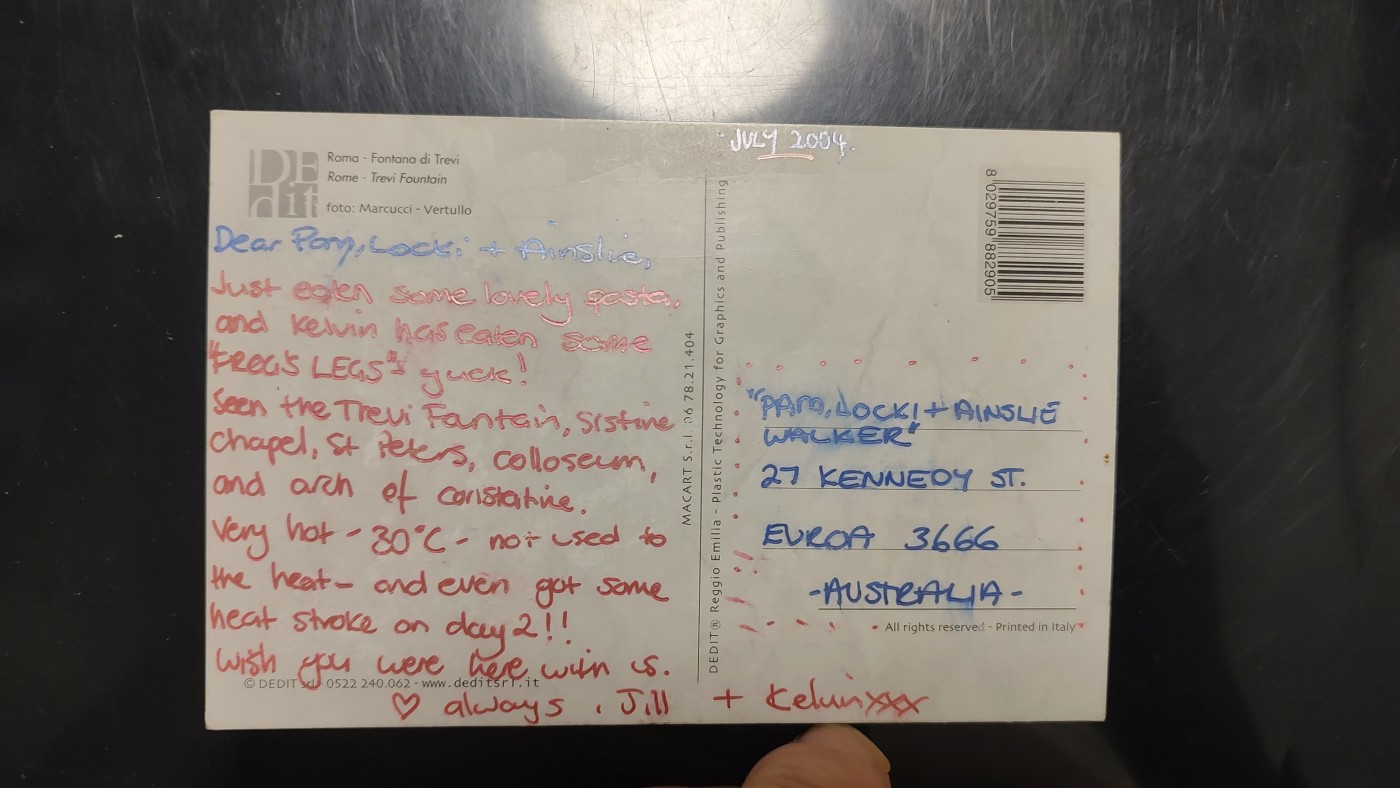 DEdit
Roma - Fontana di Trevi
Rome - Trevi Fountain
foto: Marcucci - Vertullo
JULY 2004.
Dear Pam, Locki + Ainslie,
Just eaten some lovely pasta,
and Kelvin has eaten some
"FROG'S LEGS" yuck!
Seen the Trevi Fantain, Sistine
Chapel, St Peters, Colloseum,
and arch of constatine.
Very hot - 30°C - not used to
the heat - and even got some
heat stroke on day 2!!
Wish you were here with us.
♡ always, Jill + Kelvin xxx
© DEDIT srl - 0522 240.062 - www.deditsrl.it
MACART S.r.l. 06 78.21.404
DEDIT® Reggio Emilia - Plastic Technology for Graphics and Publishing
8 029759 882905
"PAM, LOCKI + AINSLIE
WALKER"
27 KENNEDY ST.
EUROA 3666
- AUSTRALIA -
All rights reserved - Printed in Italy